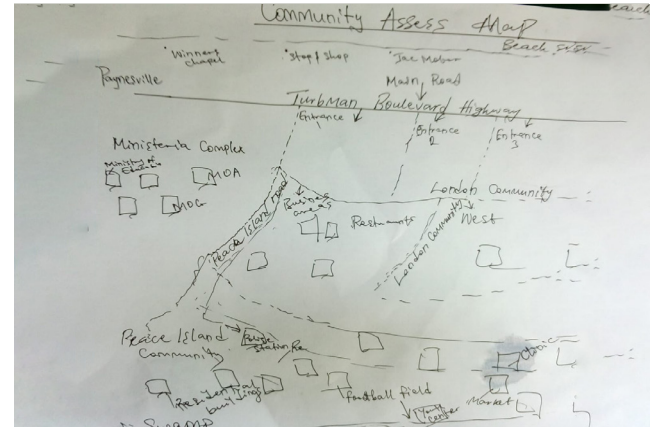 Community Assess Map
Beach side
Winners chapel
Stop & Shop
Joe
Main Road
Paynesville
Turbman Boulevard Highway
Entrance
Entrance 2
Entrance 3
Ministerial Complex
Ministry of
MOA
MOG
Peace Island road
Business areas
Restruants
London Community
West
London Community
Peace Island Community
Police Station
Clinic
Residential buildings
football field
Market
Youth center
Swamp